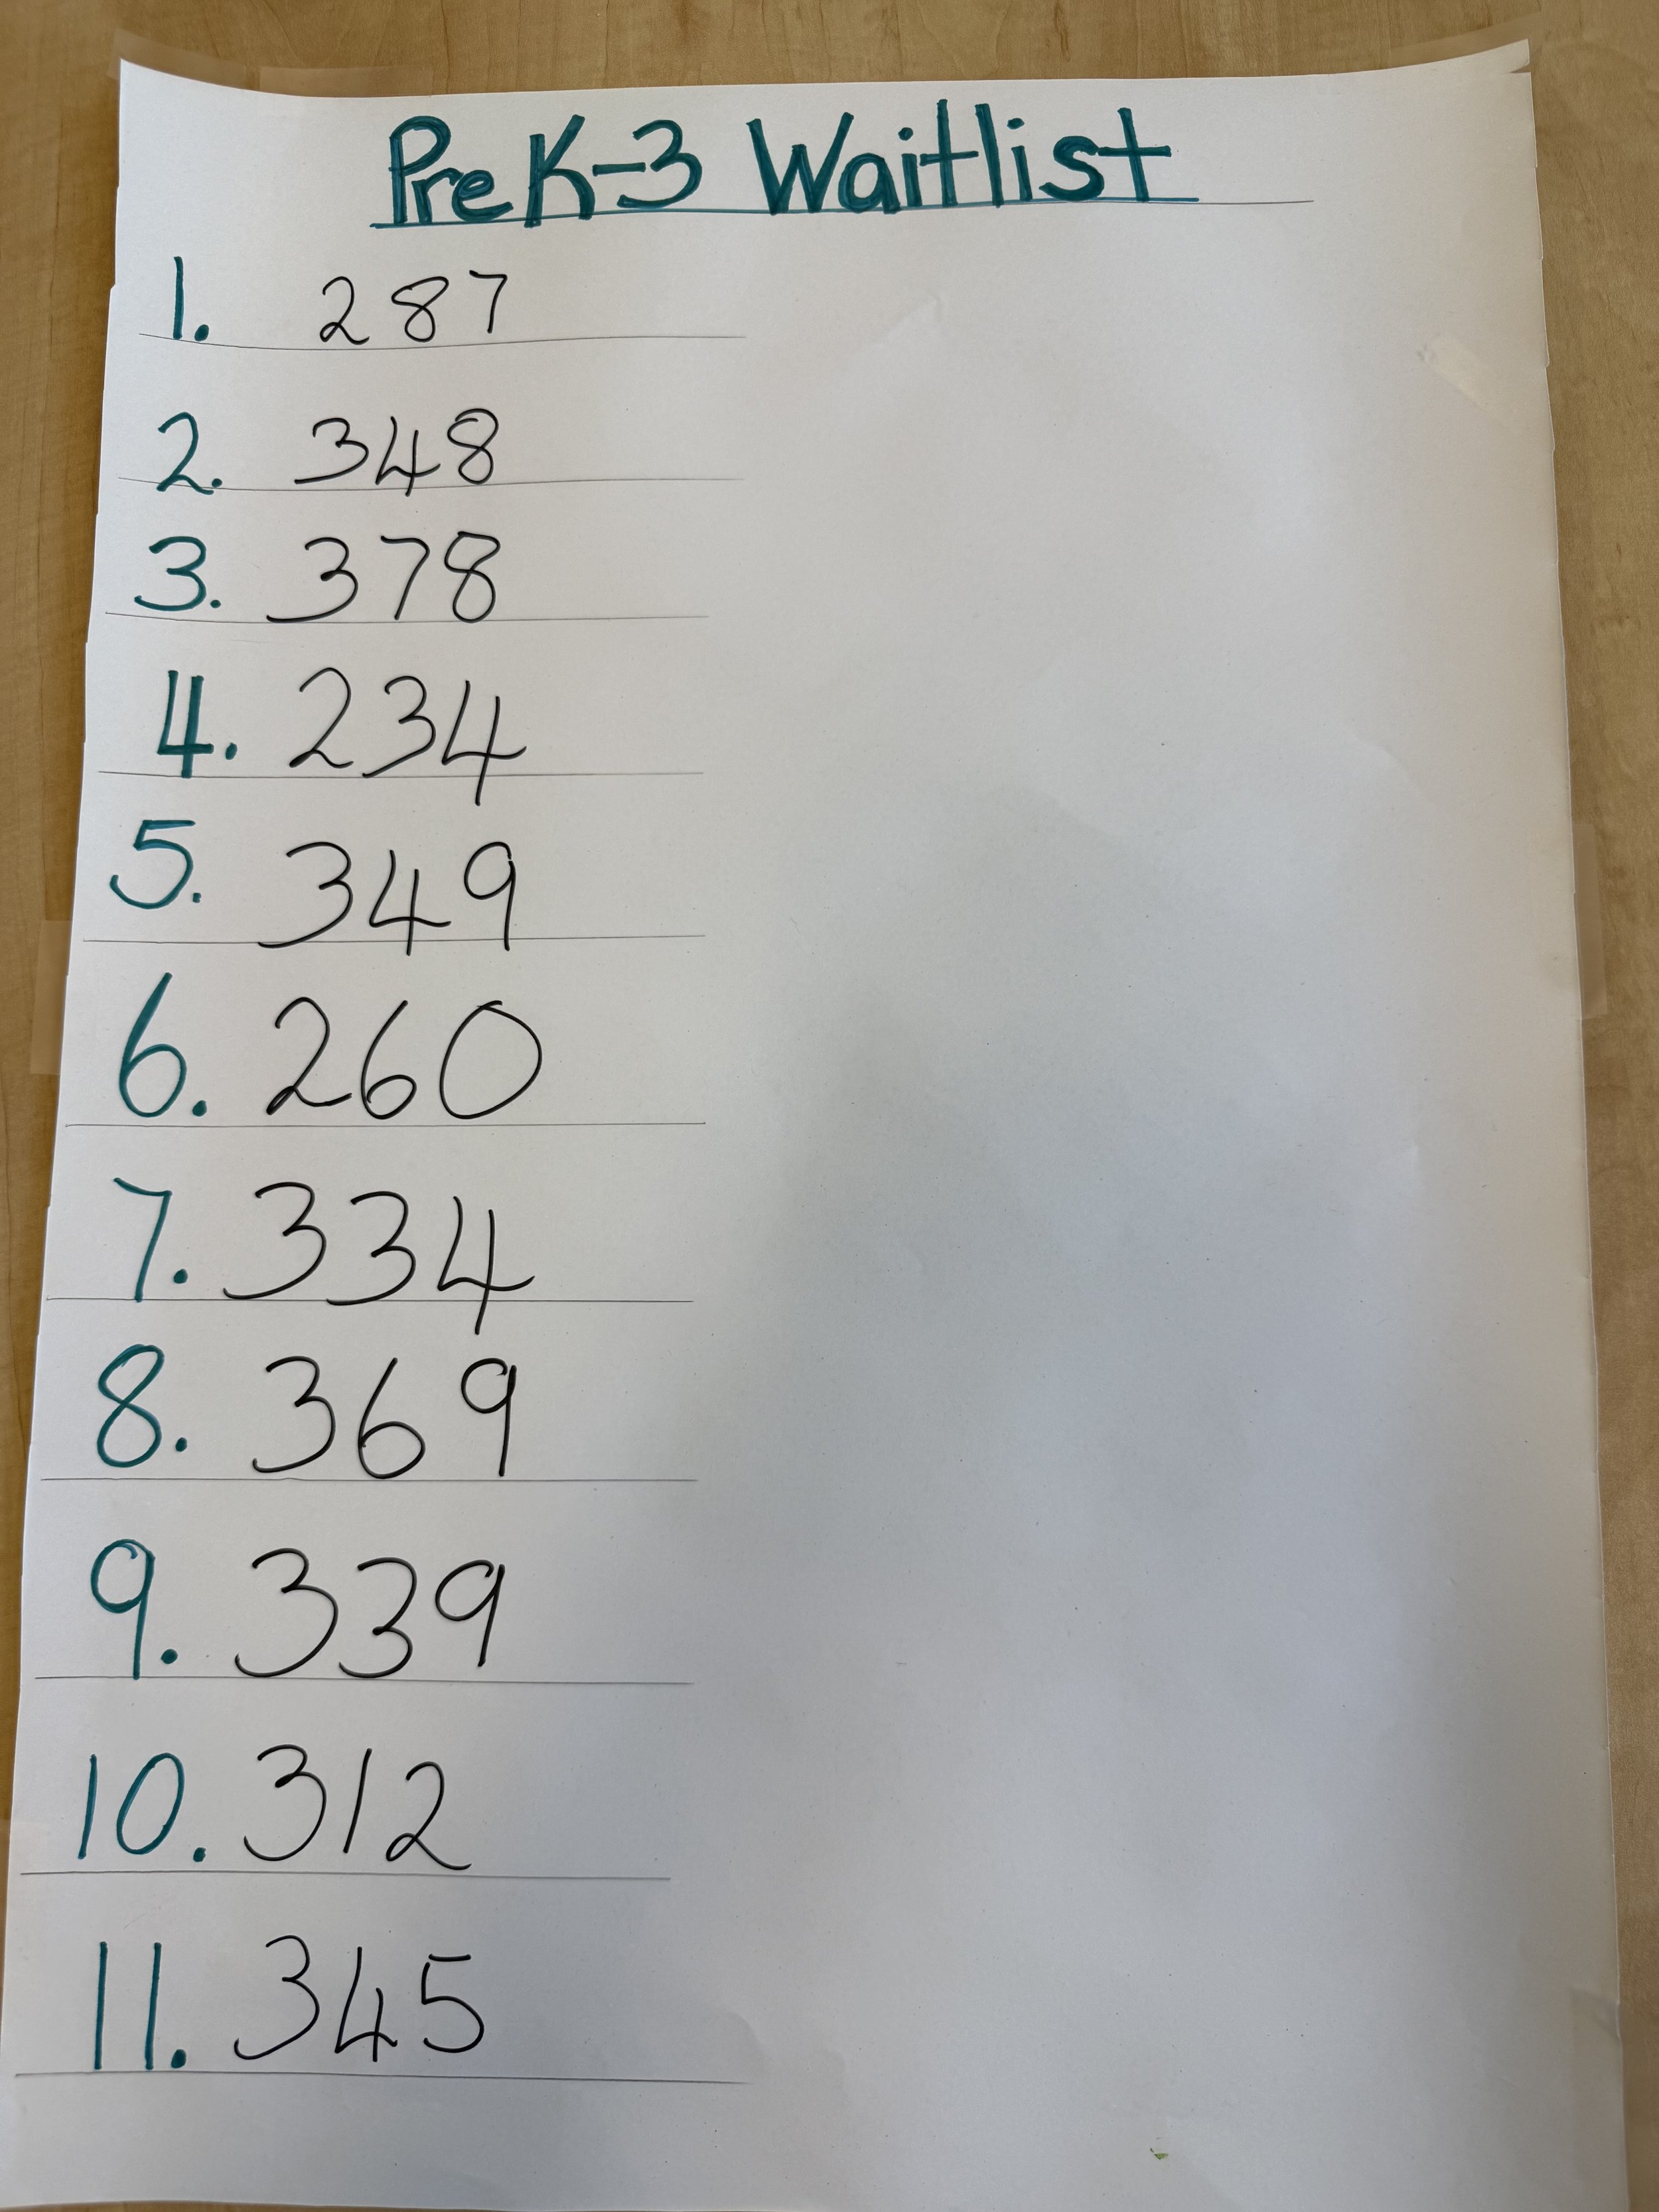 PreK-3 Waitlist
1. 287
2. 348
3. 378
4. 234
5. 349
6. 260
7. 334
8. 369
9. 339
10. 312
11. 345